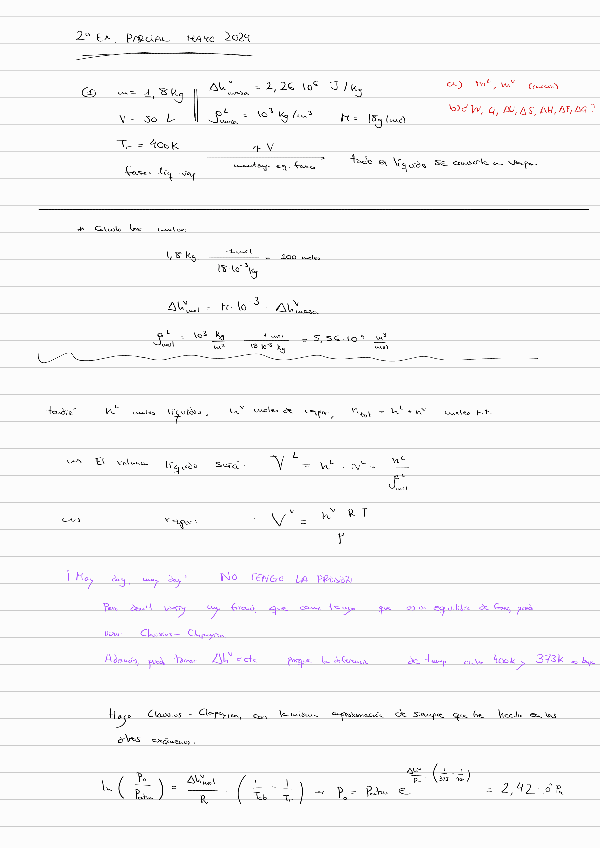 2º EX. PARCIAL MAYO 2024
(1) m = 1,8 kg Δh^v masa = 2,26·10⁶ J/kg a) m^L, m^v (masas)
V = 50 L ρ^L masa = 10³ kg/m³ M = 18 g/mol b) W, Q, ΔU, ΔS, ΔH, ΔF, ΔG?
T = 400K ↑V todo el líquido se convierte en vapor
fase: liq-vap
Calculo los moles:
1,8 kg 1 mol / 18·10⁻³ kg = 100 moles
Δh^v mol = M·10⁻³ · Δh^v masa
ρ^L mol = 10³ kg/m³ 1 mol / 18·10⁻³ kg = 5,56·10⁴
tendré n^L moles líquidos, n^v moles de vapor, n tot = n^L + n^v moles
El volumen líquido será: V^L = n^L · v^L = n^L / ρ^L mol
vapor: V^v = n^v R T / P
¡ May day, may day! NO TENGO LA PRESIÓN
Pero don't worry my friend, que como tengo que estar equilibrio de fase, puedo
usar Clausius-Clapeyron
Además, puedo tomar Δh^v = cte porque la diferencia de temp entre 400K y 373K es baja
Hago Clausius-Clapeyron, con la misma aproximación de siempre que he hecho en los
otros exámenes:
ln (P₀ / Patm) = Δh^v mol / R · (1/Teb - 1/T) → P₀ = Patm e^(Δh^v/R (1/373 - 1/400)) = 2,42·10⁵ Pa